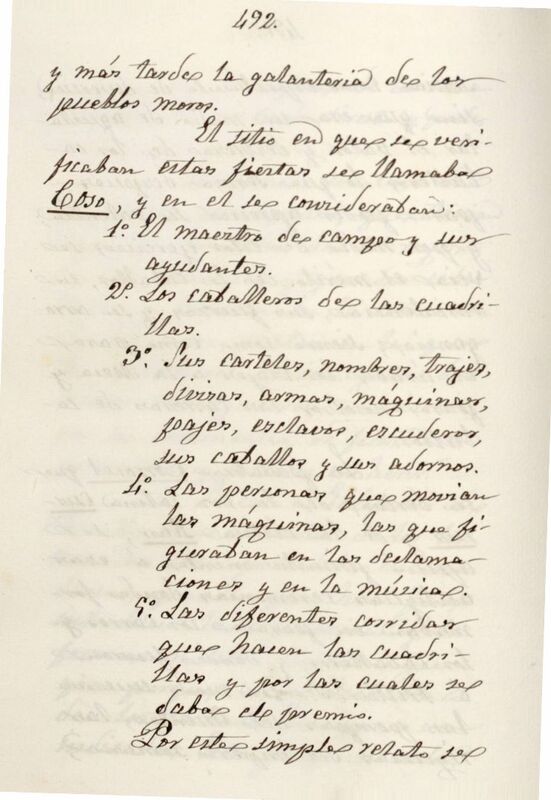 492.
y más tarde la galanteria de los
pueblos moros.
El sitio en que se veri-
ficaban estas fiestas se llamaba
Coso, y en el se consideraban:
1º El maestro de campo y sus
ayudantes.
2º. Los caballeros de las cuadri-
llas.
3º. Sus carteles, nombres, trajes,
divisas, armas, máquinas,
pajes, esclavos, escuderos,
sus caballos y sus adornos.
4º. Las personas que movian
las máquinas, las que fi-
guraban en las declama-
ciones y en la música.
5º. Las diferentes corridas
que hacen las cuadri-
llas y por las cuales se
daba el premio.
Por este simple relato se